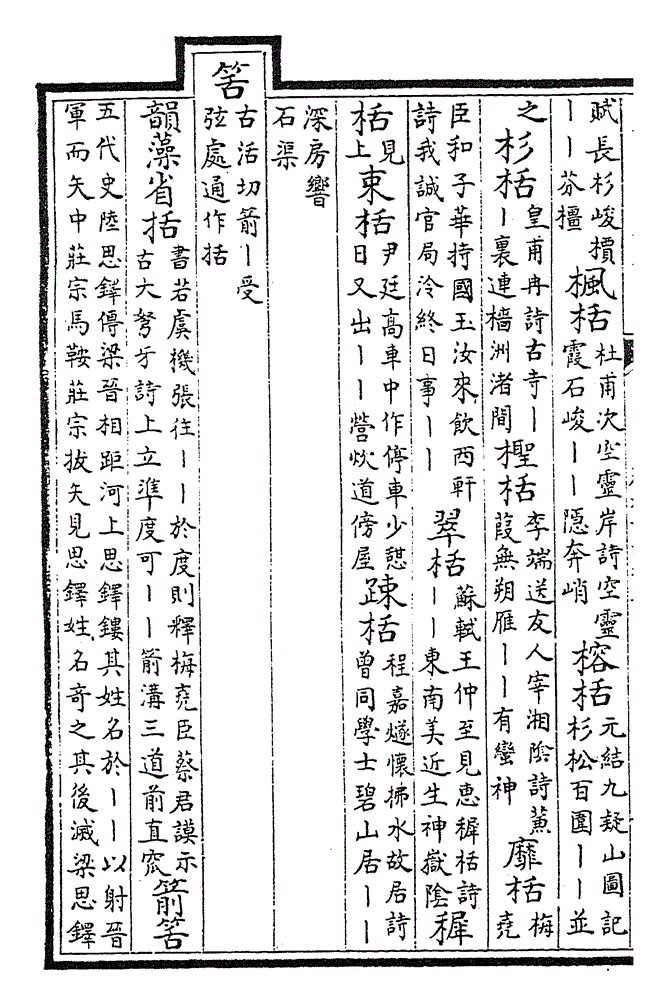 賦長杉峻檟丨丨芬橿楓栝杜甫次空靈岸詩空靈霞石峻丨丨隱奔峭榕栝元結九疑山圖記杉松百圍丨丨並
之杉栝皇甫冉詩古寺丨丨裏連檣洲渚間檉栝李端送友人宰湘陰詩蒹葭無朔雁丨丨有蠻神靡栝梅堯
臣和子華持國玉汝來飲西軒詩我誠官局冷終日事丨丨翠栝蘇軾王仲至見惠穉栝詩丨丨東南美近生神嶽陰穉
栝見上束栝尹廷高車中作停車少憩日又出丨丨營炊道傍屋疎栝程嘉燧懷拂水故居詩曾同學士碧山居丨丨
深房響石渠
筈
古活切箭丨受弦處通作括
韻藻省括書若虞機張往丨丨於度則釋梅堯臣蔡君謨示古大弩牙詩上立準度可丨丨箭溝三道前直窾箭筈
五代史陸思鐸傳梁晉相距河上思鐸鏤其姓名於丨丨以射晉軍而矢中莊宗馬鞍莊宗拔矢見思鐸姓名奇之其後滅梁思鐸